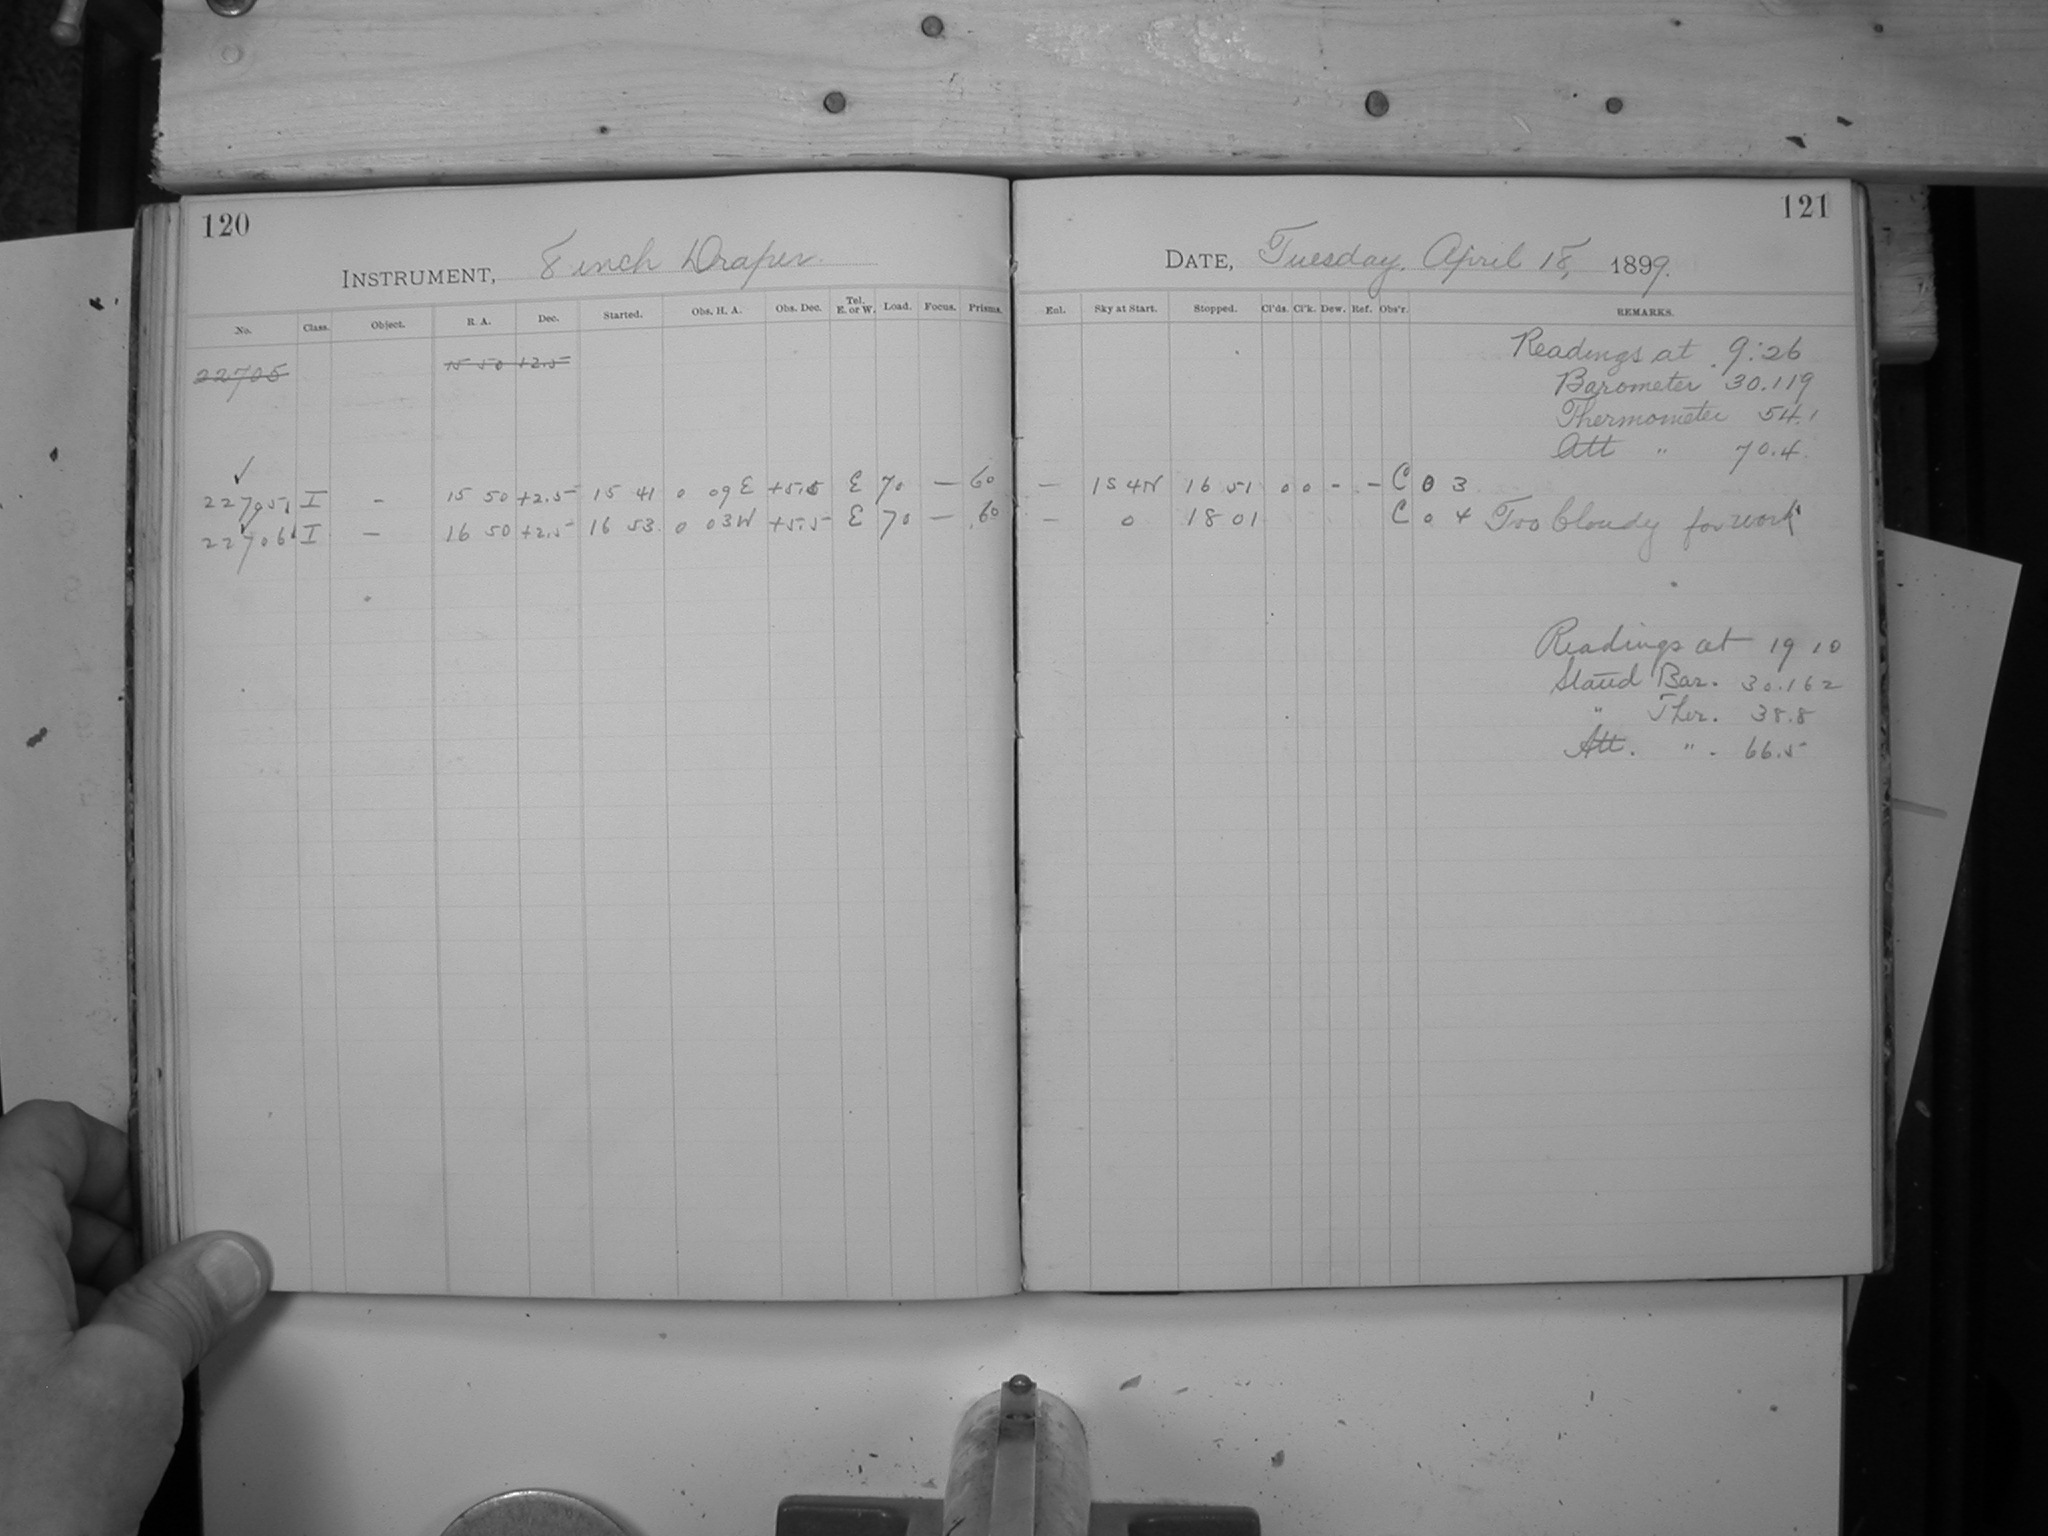 120
INSTRUMENT, 8 inch Draper.
No. Class. Object. R. A. Dec. Started. Obs. H. A. Obs. Dec. Tel. E. or W. Load. Focus. Prisms.
22705 15 50 +2.5
22705 I - 15 50 +2.5 15 41 0 09 E +5.5 E 70 — 60
22706 I — 16 50 +2.5 16 53 0 03 W +5.5 E 70 — 60
121
DATE, Tuesday, April 18, 1899.
Enl. Sky at Start. Stopped. Cl'ds. Cl'k. Dew. Ref. Obs'r. REMARKS.
Readings at 9:26
Barometer 30.119
Thermometer 54.1
Att " 70.4
— 1S 4N 16 51 0 0 - - - C 0 3
— 0 18 01 C 0 4 Too Cloudy for work
Readings at 19 10
Stand Bar. 30.162
" Ther. 38.8
Att. " . 66.5